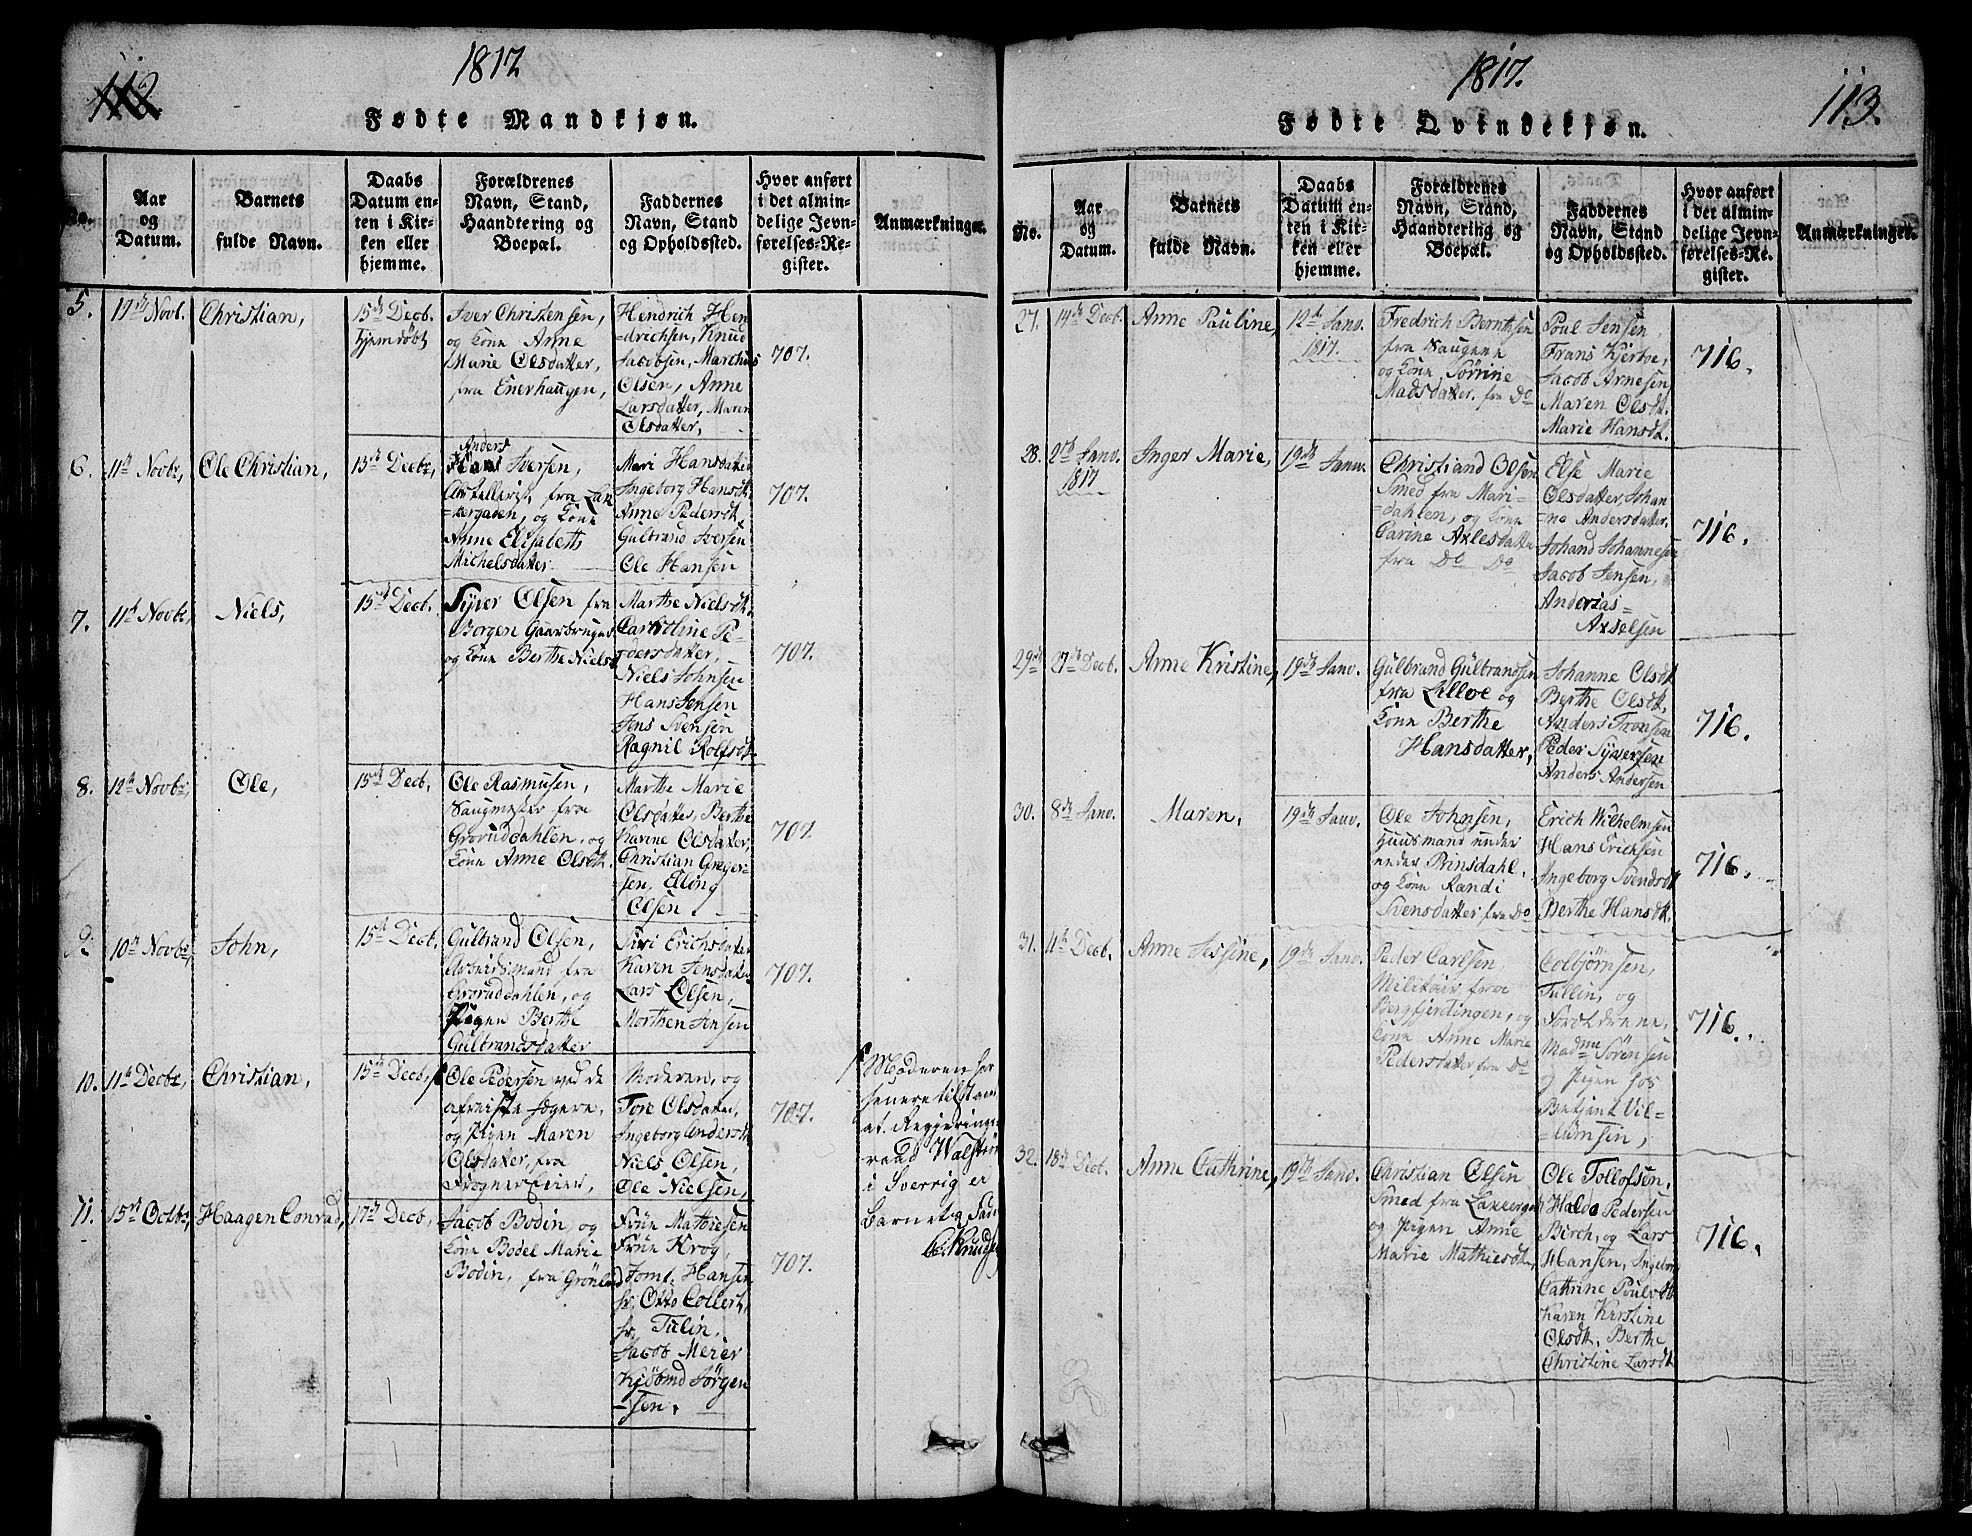 112.
1817
Fødte Mandkjøn.
No.
Aar
og
Datum.
Barnets
fulde Navn.
Daabs
Datum en-
ten i Kir-
ken eller
hjemme.
Forældrenes
Navn, Stand,
Haandtering og
Boepæl.
Faddernes
Navn, Stand
og Opholdssted.
Hvor anført
i det almin-
delige Jevn-
førelses-Re-
gister.
Anmærkninger.
5.
19de Novb.
Christian,
15de Decb.
hjemdøbt
Iver Christensen,
og Kone Anne
Marie Olsdatter,
fra Enerhaugen,
Hendrich Hen
drichsen, Knud
Jacobsen, Marthus
Olsen, Anne
Larsdatter, Maren
Olsdatter,
707.
6.
11te Novbr,
Ole Christian,
15de Decbr,
Anders
Iversen,
fra Lak
kergaden, og Kone
Anne Elisabeth
Michelsdatter
Mari Hansdatter
Ingeborg Hansdt.
Anne Pedersdt.
Gulbrand Iversen
Ole Hansen
707.
7.
11te Novbr,
Niels,
15de Decb.
Syver Olsen fra
Borgen Gaardbruger
og Kone Berthe Nielsd
Marthe Nielsdt.
Caroline Pe-
dersdatter,
Niels Johnsen
Hans Jensen
Jens Svensen
Ragnil Rolfsdt.
707.
8.
12te Novbr,
Ole,
15de Decb,
Ole Rasmusen,
Saugmester fra
Groruddahlen, og
Kone Anne Olsdt.
Marthe Marie
Olsdatter, Berthe
Karine Olsdatter,
Christian Greger-
sen, Elling
Olsen.
707.
9.
10de Novbr,
John,
15de Decb,
Gulbrand Olsen,
Arbeidsmand fra
Groruddahlen, og
Pigen Berthe
Gulbrandsdatter
Siri Erichsdatter
Karen Jensdatter
Lars Olsen,
Morthen Jensen
707.
10.
11te Decbr,
Christian,
15de Decb,
Ole Pedersen ved de
Jægere,
og Pigen Maren
Olsdatter, fra
Frognerseier,
Moderen, og
Tore Olsdatter,
Ingeborg Andersdt
Niels Olsen,
Ole Nielsen,
707.
Moderen har
senere tilstaaet
at Regjerings-
raad Walstrøm
i Sverrig er
Barnets Fader
11.
15de Octbr,
Haagen Conrad,
17de Decb,
Jacob Bodin og
Kone Bodel Marie
Bodin, fra Grønland
Frue Mathiesen
Frue Krog,
Jomf. Hansen
hr. Otto Collett,
hr. Tulin,
Jacob Meier
Kjøbmd Jørgen
sen.
707.
1817.
113.
Fødte Qvindekjøn.
No.
Aar
og
Datum.
Barnets
fulde Navn.
Daabs
Datum en-
ten i Kir-
ken eller
hjemme.
Forældrenes
Navn, Stand,
Haandtering og
Boepæl.
Faddernes
Navn, Stand
og Opholdssted.
Hvor anført
i det almin-
delige Jevn-
førelses-Re-
gister.
Anmærkninger.
27.
14de Decb.
Anne Pauline,
12te Janv.
1817.
Fredrich Berntsen
fra Haugene
og Kone Sørrine
Madsdatter. fra Do
Poul Jensen,
Frans Kjerbe,
Jacob Arnesen
Maren Olsdt.
Marie Hansdt.
716.
28.
2den Janv.
1817
Inger Marie,
19de Janv.
Christiand Olsen
Smed fra Mari-
dahlen, og Kone
Carine Axlesdatter
fra Do Do
Else Marie
Olsdatter, Johan
ne Andersdatter.
Johand Johannesen
Jacob Jensen,
Anderias
Axelsen
716.
29de
27de Decb.
Anne Kristine,
19de Janv.
Gulbrand Gulbrandsen
fra Lilloe og
Kone Berthe
Hansdatter,
Johanne Olsdt
Berthe Olsdt.
Anders Tronsen
Peder Syversen
Anders Andersen
716.
30.
8de Janv.
Maren,
19de Janv.
Ole Johnsen,
Huusmand under
under Prinsdahl.
og Kone Randi
Svensdatter fra Do
Erich Wilhelmsen
Hans Erichsen
Ingeborg Svendsdt
Berthe Hansdt.
716.
31.
11te Decb.
Anne Jessine,
19de Janv.
Peder Carlsen,
Militair, fra
Bergfjerdingen, og
Kone Anne Marie
Pedersdatter fra Do
Colbjørnsen,
Tullin, og
Forældrene,
Madme Sörensen
og Pigen hos
Betjent Vil-
lumsen,
716.
32.
18de Decb.
Anne Cathrine,
19de Janv.
Christian Olsen
Smed fra Lakkergad
og Pigen Anne
Marie Mathiesdt,
Ole Tollofsen,
Halvo Pedersen
Birch, og Lars
Hansen, Ingeborg
Cathrine Poulsdt
Karen Kirstine
Olsdt. Berthe
Christine Larsdt
716.